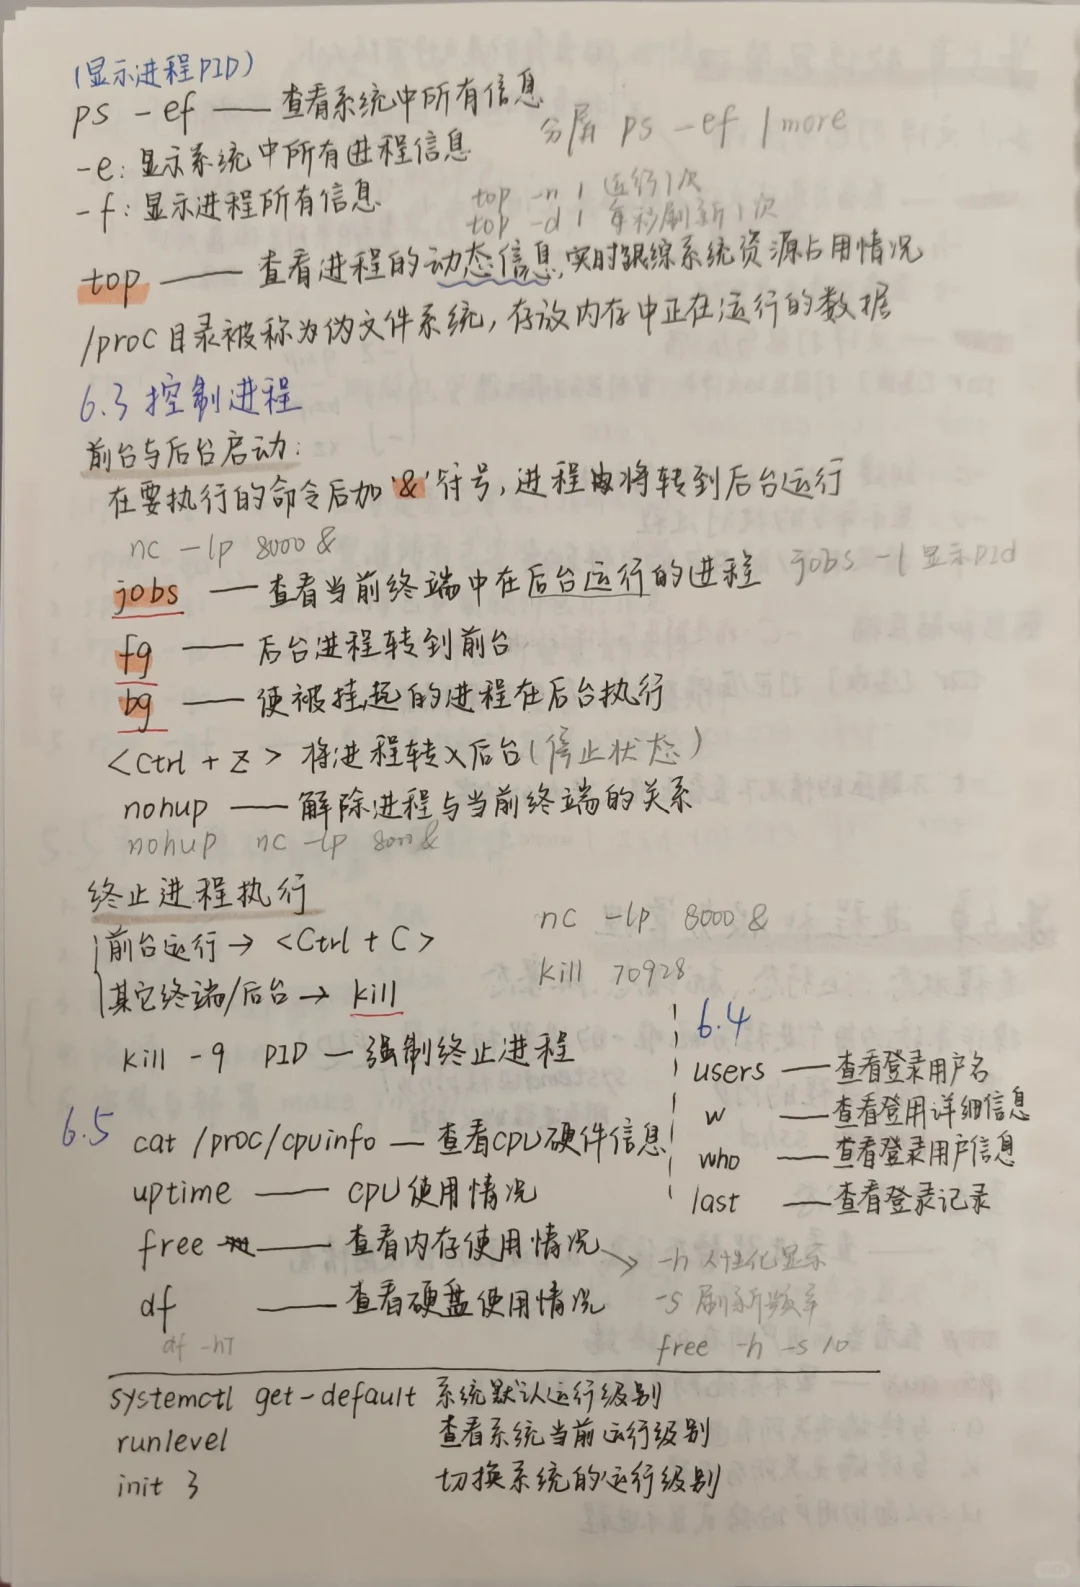 (显示进程PID)
ps -ef —— 查看系统中所有信息
分屏 ps -ef | more
-e: 显示系统中所有进程信息
-f: 显示进程所有信息
top -n 1 运行1次
top -d 1 每秒刷新1次
top —— 查看进程的动态信息,实时跟综系统资源占用情况
/proc目录被称为伪文件系统, 存放内存中正在运行的数据
6.3 控制进程
前台与后台启动:
在要执行的命令后加'&'符号, 进程将转到后台运行
nc -lp 8000 &
jobs —— 查看当前终端中在后台运行的进程 jobs -l 显示PId
fg —— 后台进程转到前台
bg —— 使被挂起的进程在后台执行
<Ctrl + Z> 将进程转入后台(停止状态)
nohup —— 解除进程与当前终端的关系
nohup nc -lp 8000 &
终止进程执行
前台运行 → <Ctrl + C>
其它终端/后台 → kill
nc -lp 8000 &
kill 70928
kill -9 PID — 强制终止进程
6.4
users —— 查看登录用户名
w —— 查看登用详细信息
who —— 查看登录用户信息
last —— 查看登录记录
6.5
cat /proc/cpuinfo — 查看CPU硬件信息
uptime —— CPU使用情况
free —— 查看内存使用情况
-h 人性化显示
-s 刷新频率
free -h -s 10
df —— 查看硬盘使用情况
df -hT
systemctl get-default 系统默认运行级别
runlevel 查看系统当前运行级别
init 3 切换系统的运行级别